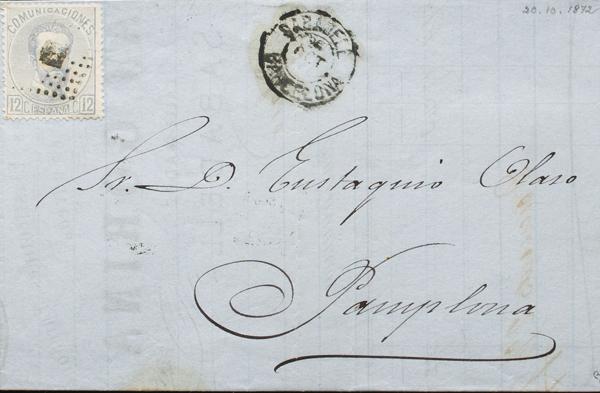 20.10.1872
COMUNICACIONES
12 ESPAÑA 12
SABADELL
BARCELONA
Sr. D. Eustaquio Olaso
Pamplona